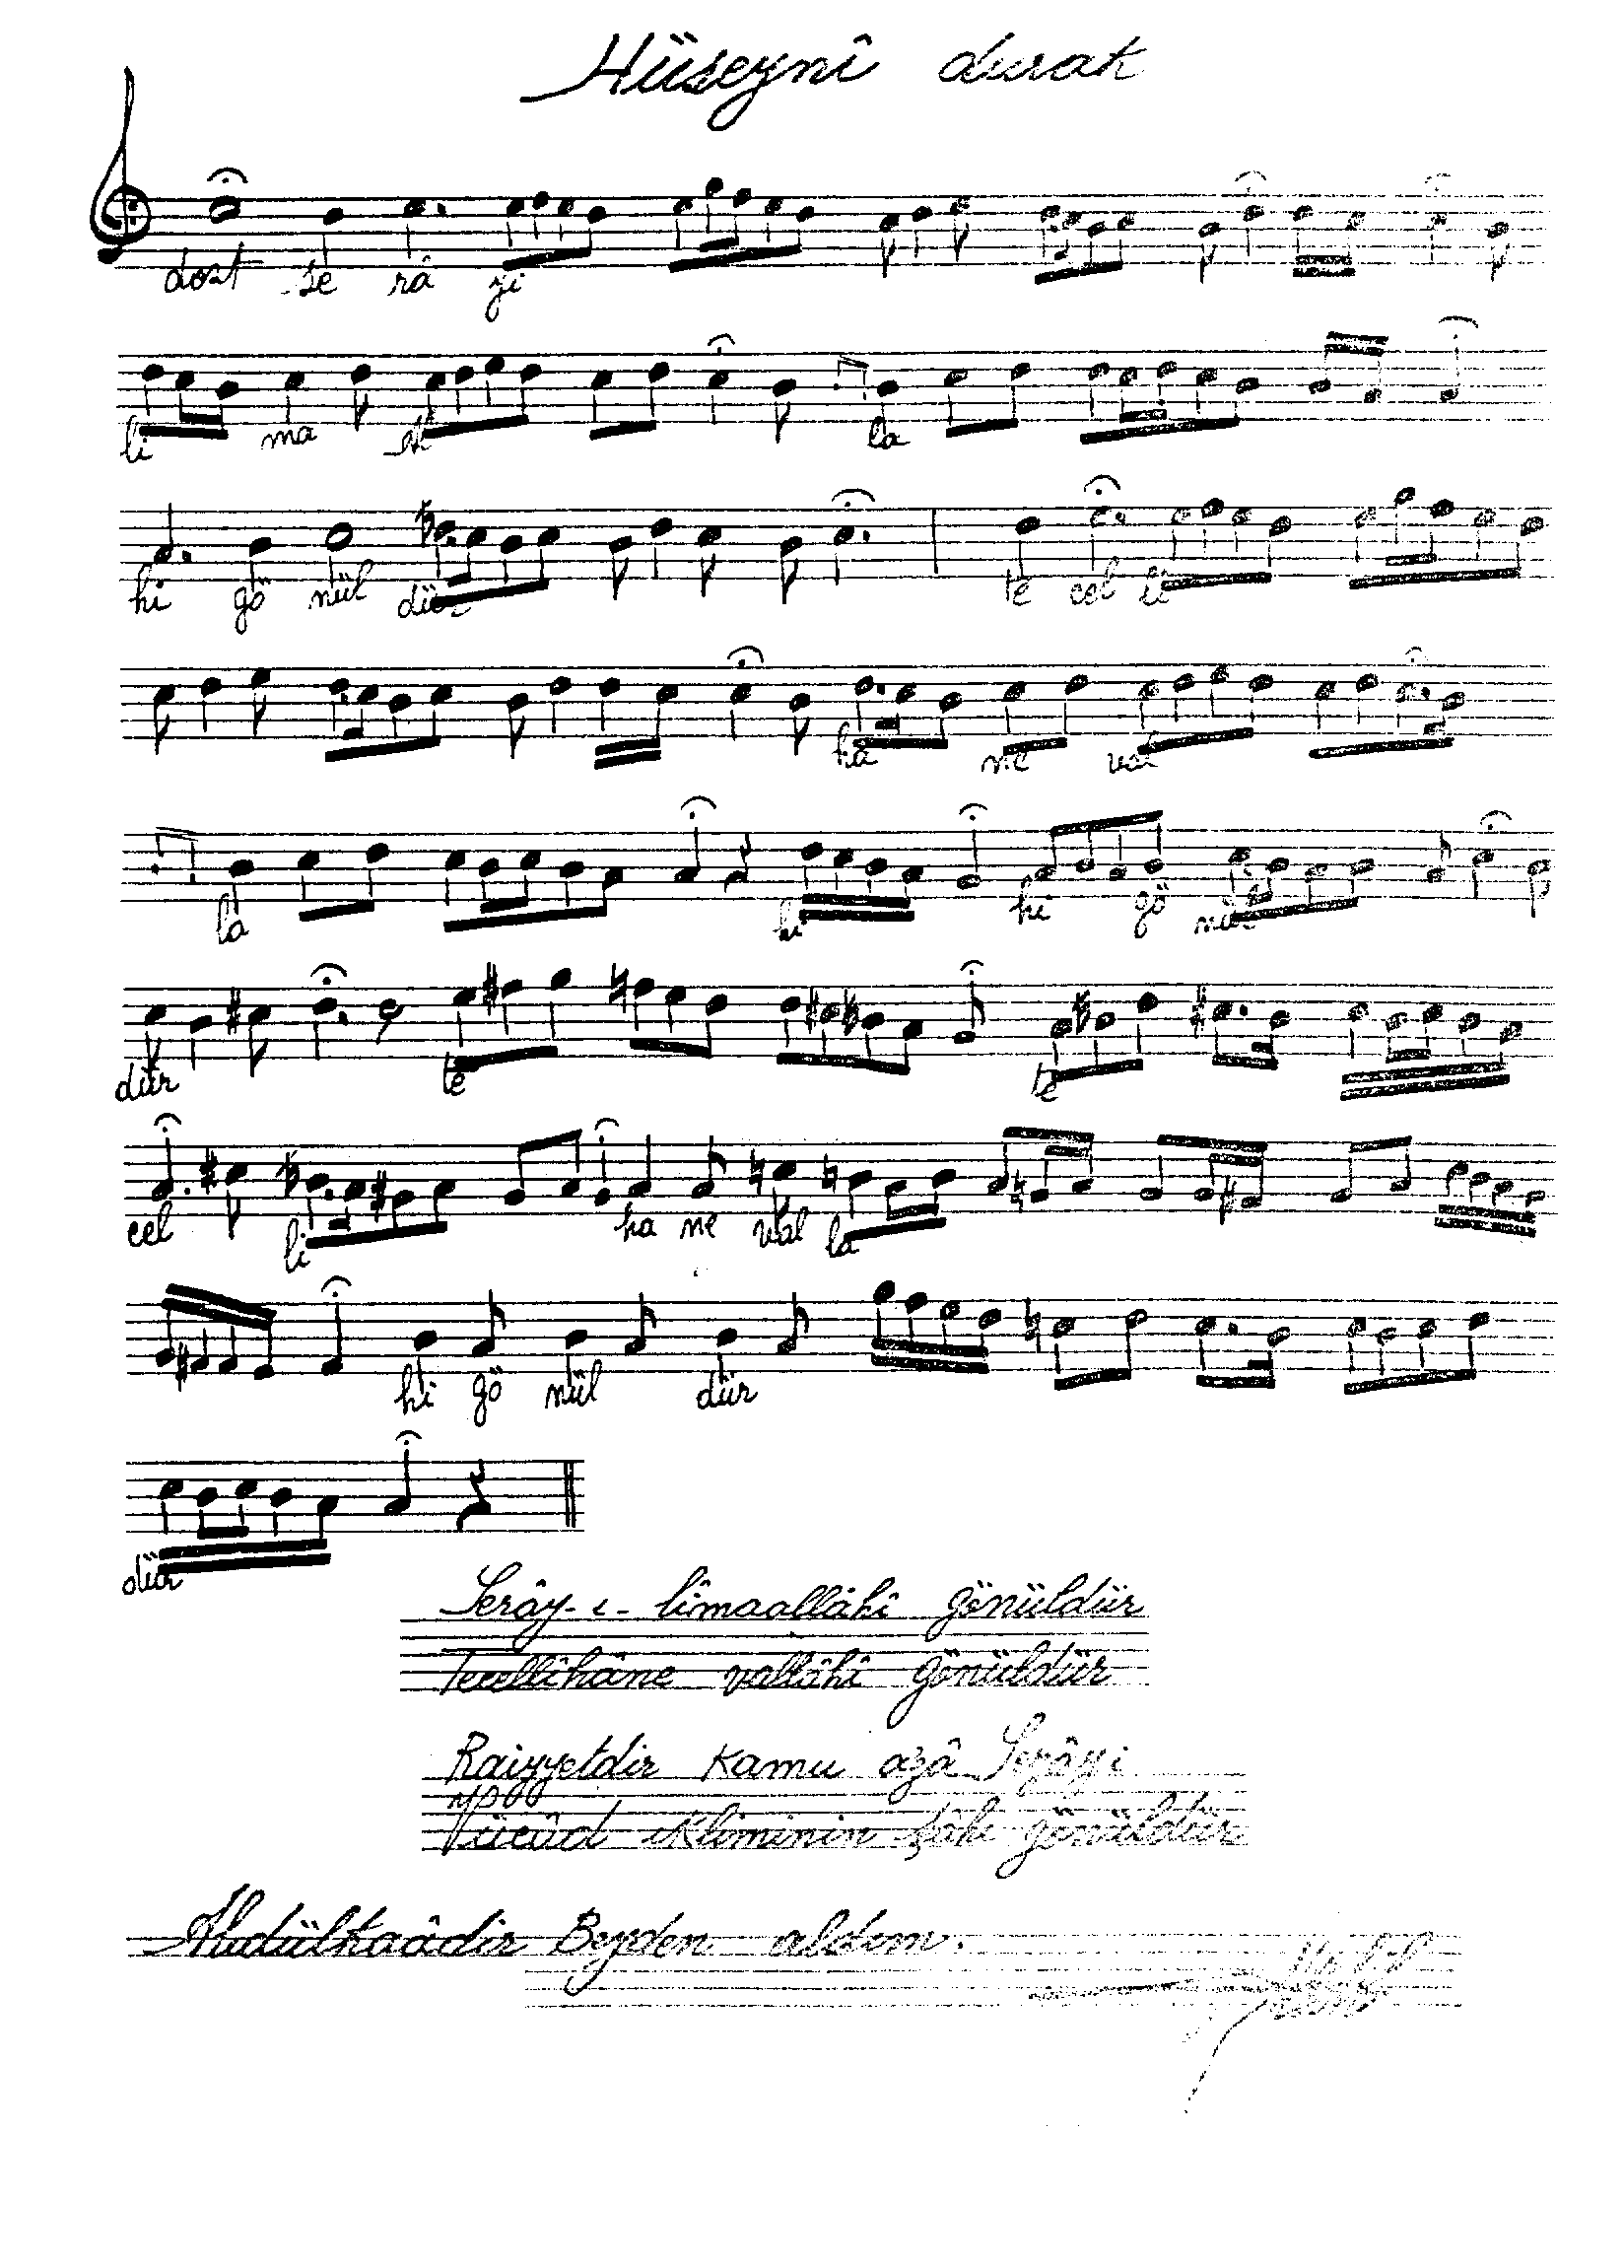 Hüseynî durak
dost se râ yi
li ma al la
hi gö nül dür te cel li
hâ ne val
la hi hi gö nül
dür te te
cel li ha ne val la
hi gö nül dür
dür
Serây-ı-lîmaallâhî gönüldür
Tecellîhâne vallâhî gönüldür
Raiyyetdir kamu azâ Serâyi
Vücûd ikliminin şâhı gönüldür
Abdülkaâdir Beyden aldım.